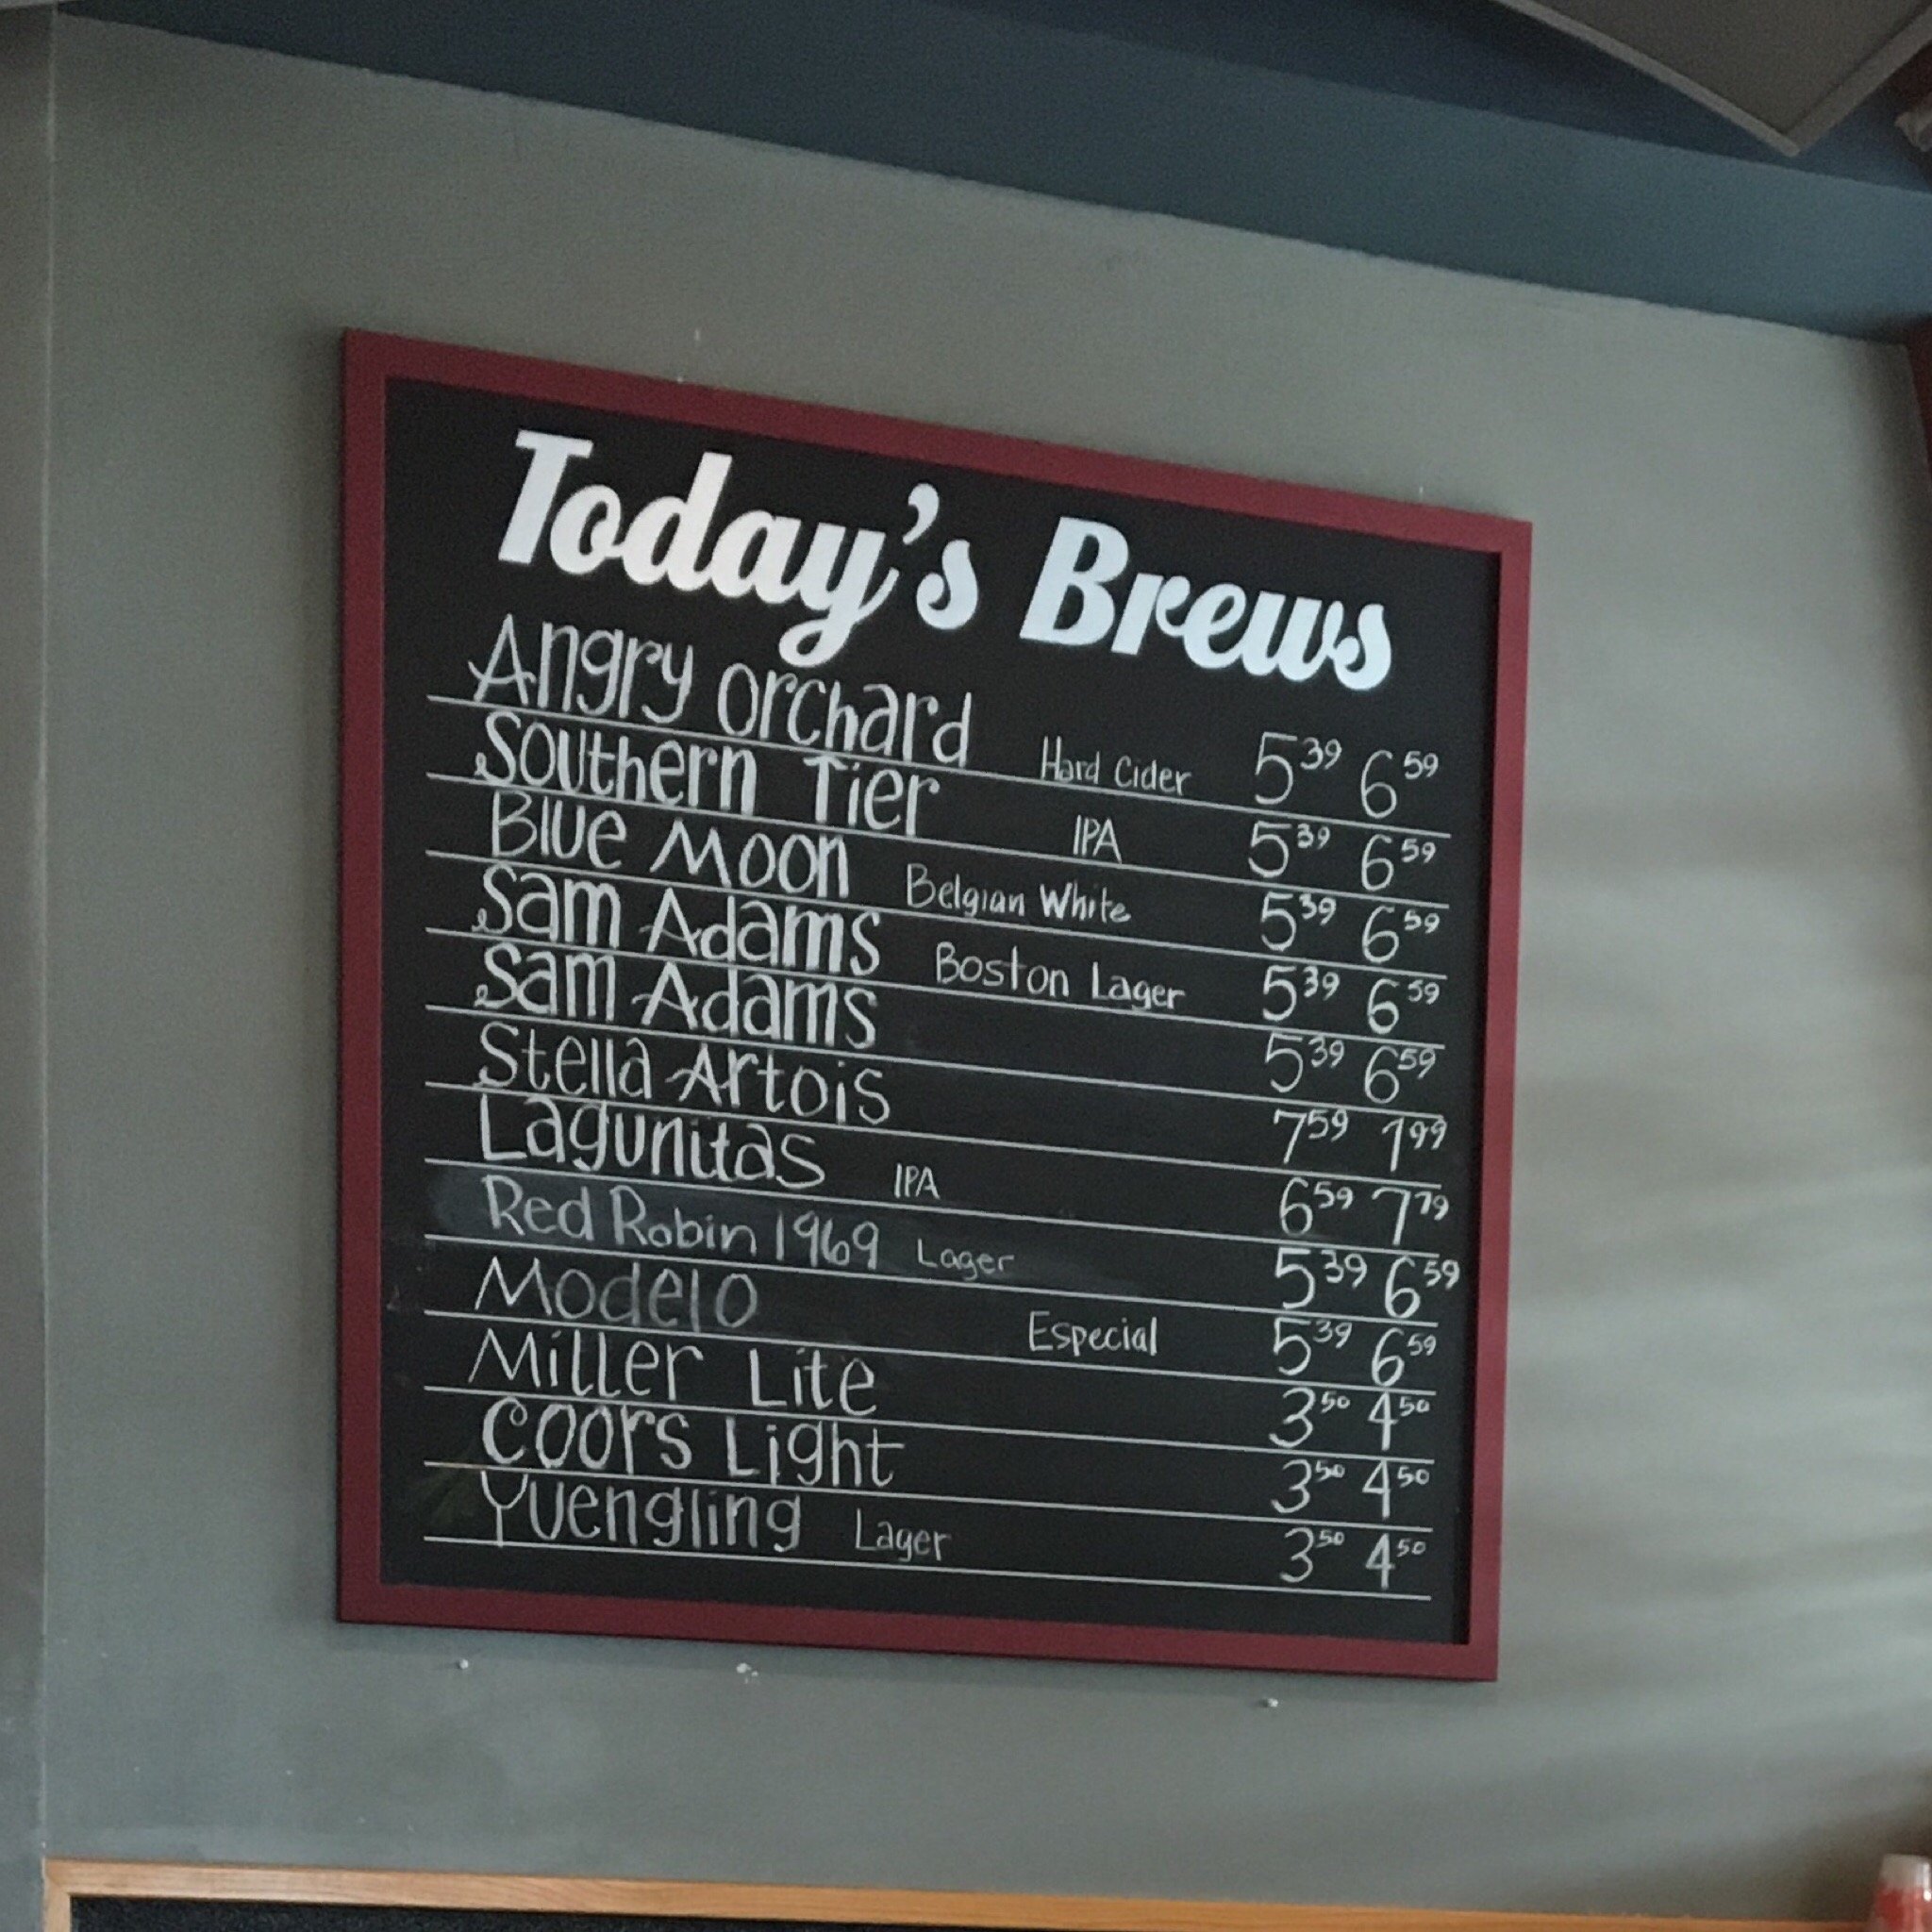 Today's Brews
Angry Orchard Hard Cider 5³⁹ 6⁵⁹
Southern Tier IPA 5³⁹ 6⁵⁹
Blue Moon Belgian White 5³⁹ 6⁵⁹
Sam Adams Boston Lager 5³⁹ 6⁵⁹
Sam Adams 5³⁹ 6⁵⁹
Stella Artois 7⁵⁹ 7⁹⁹
Lagunitas IPA 6⁵⁹ 7⁷⁹
Red Robin 1969 Lager 5³⁹ 6⁵⁹
Modelo Especial 5³⁹ 6⁵⁹
Miller Lite 3⁵⁰ 4⁵⁰
Coors Light 3⁵⁰ 4⁵⁰
Yuengling Lager 3⁵⁰ 4⁵⁰